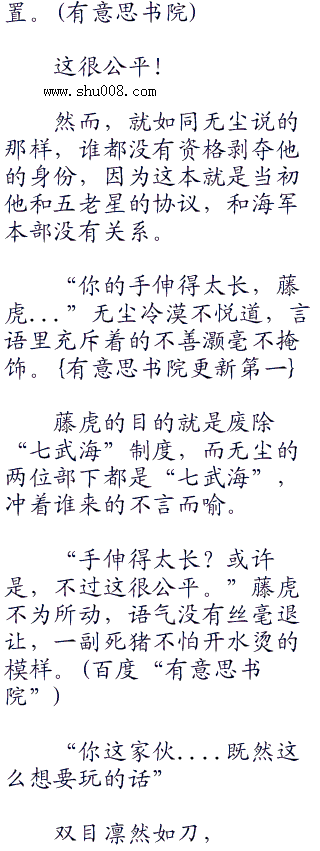 置。(有意思书院)
这很公平！
www.shu008.com
然而，就如同无尘说的
那样，谁都没有资格剥夺他
的身份，因为这本就是当初
他和五老星的协议，和海军
本部没有关系。
“你的手伸得太长，藤
虎...”无尘冷漠不悦道，言
语里充斥着的不善灏毫不掩
饰。{有意思书院更新第一}
藤虎的目的就是废除
“七武海”制度，而无尘的
两位部下都是“七武海”，
冲着谁来的不言而喻。
“手伸得太长？或许
是，不过这很公平。”藤虎
不为所动，语气没有丝毫退
让，一副死猪不怕开水烫的
模样。(百度“有意思书
院”)
“你这家伙....既然这
么想要玩的话”
双目凛然如刀，